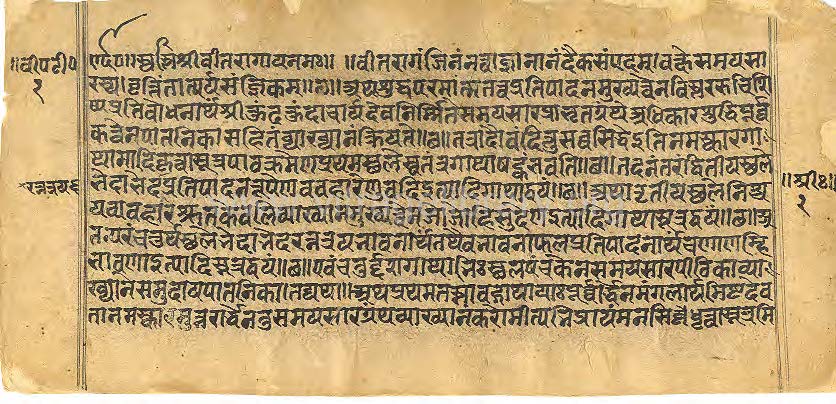 ॥ स्वस्ति श्रीवीतरागाय नमः॥ ॥वीतरागं जिनं नत्वा ज्ञानानंदैकसंपदम् वक्ष्ये समयसा
रस्य वृत्तिं तात्पर्यसंज्ञिकाम् ॥छ॥ अथ शुद्धपरमात्मतत्वप्रतिपादनमुख्यत्वेन विस्तररुचिशि
ष्यप्रतिबोधनार्थं श्रीकुंदकुंदाचार्यदेवनिर्मिते समयसारप्राभृतग्रंथे अधिकारशुद्धिपूर्व
कत्वेन पातनिकासहितं व्याख्यानं क्रियते॥छ॥ तत्रादौ वंदित्तु सव्वसिद्धे इति नमस्कारगा
थामादिं कृत्वा सूत्रपाठक्रमेण प्रथमस्थले स्वतंत्रगाथाषट्कं भवति॥छ॥ तदनंतरं द्वितीयस्थले
भेदाभेद प्रतिपादनरूपेण ववहारेणुव इत्यादिगाथाद्वयं॥छ॥ अथ तृतीयस्थले निश्च
यव्यवहारश्रुतकेवलिव्याख्यानमुख्यत्वेन जो हि सुदेण इत्यादिगाथासूत्रद्वयं॥छ॥ अ
तःपरं चतुर्थस्थले भेदाभेदरत्नत्रयभावनार्थं तथैव भावनाफलप्रतिपादनार्थं च णाणम्हि
भावणा इत्यादिसूत्रद्वयं॥छ॥ एवं चतुर्दशगाथाभिः स्थलपंचकेन समयसारपीठिकाव्या
ख्याने समुदायपातनिका। तद्यथा॥ अथ प्रथमतस्तावद्गाथायाः पूर्वार्द्धेन मंगलार्थमिष्टदेव
तानमस्कारमुत्तरार्धेन तु समयसारग्रंथव्याख्यानं करोमीत्यभिप्रायं मनसि धृत्वा सूत्रमि
॥श्री॥
२